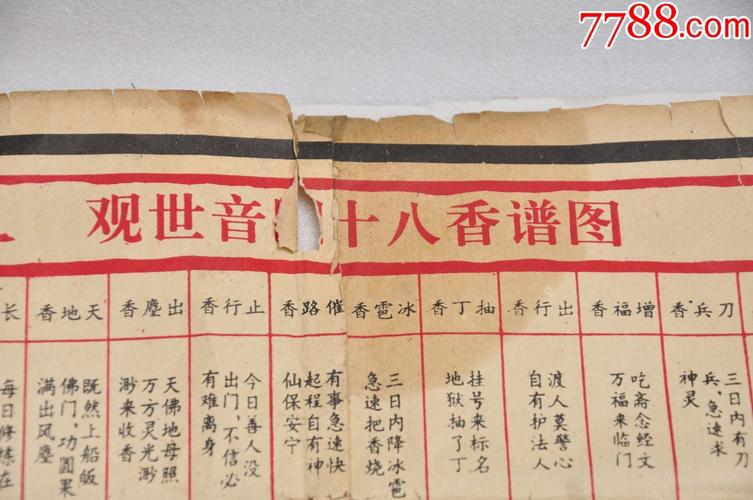 7788.com
观世音 十八香谱图
刀兵香
三日内有刀
兵,急速求
神灵
增福香
吃斋念经文
万福来临门
出行香
渡人莫警心
自有护法人
抽丁香
挂号来标名
地狱抽了丁
冰雹香
三日内降冰雹
急速把香烧
催路香
有事急速快
起程自有神
仙保安宁
止行香
今日善人没
出门,不信必
有难离身
出塵香
天佛地母照
万方灵光渺
渺来收香
天地香
既然上船舨
佛门,功圆果
满出风塵
长
每日修练在